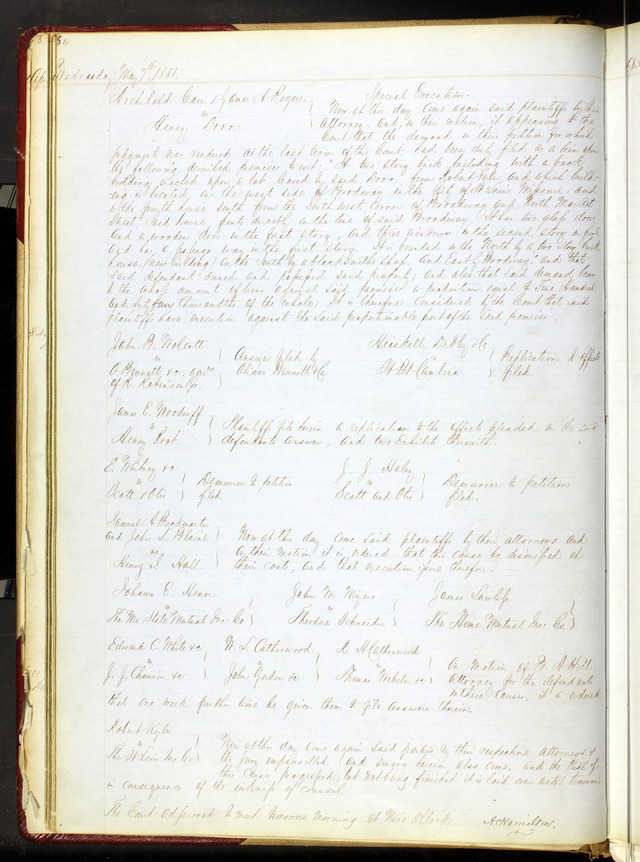 Wednesday May 7th 1851.
Archibald Carr & James A Rogers } Special Execution.
vs
Henry Dorr
Now at this day Come again said plaintiffs by their
Attorney, and, on their motion, it appearing to the
Court that the demand, in their petition for which
judgment was rendered at the last term of this Court, had been duly filed as a lien upon
the following described premises to wit: "A two story brick building with a back
building erected upon a lot leased by said Dorr from Robert and which build-
ing is located on the west side of Broadway in the City of St Louis Missouri, and
is the fourth house south from the South west corner of Broadway and North Market
Street. Said house fronts directly on the line of said Broadway. It has two glass doors
and a wooden door in the first story, and three windows in the second story in front
and has a passage way in the first story. It is bounded on the North by a two story brick
house, (new building) on the South by a blacksmiths shop and East by Broadway" and that
said defendant owned and possessed said and also that said demand bears
to the whole amount of liens against said premises a proportion equal to Five Hundred
and fifty four thousandths of the whole: It is therefore Considered by the Court that said
plaintiffs have execution against the said proportionable part of the said premises.
John R. Wolcott
vs
O Bennett & co, garns
of R Robinson Jr.
} Answer filed by
Oliver Bennett & Co
Heiskell, & Co
vs
} Replication to
filed.
James E. Woodruff
vs
Henry Root
} Plaintiffs file herein a replication to the pleaded in the said
defendants answer, and two Exhibits therewith.
E. Whitney & co
vs
Scott & Otis
} Demurrer to petition
filed.
J. J. Haley
vs
Scott and Otis
} Demurrer to petition
filed.
Samuel A
and John L. Blaine
vs
Henry S. Hall.
} Now at this day come said plaintiffs by their attorneys and
on their motion it is ordered that this cause be dismissed at
their costs, and that execution issue therefor.
Johanna E. Henn
vs
The Mo. State Mutual Ins. Co }
John M. Myers
vs
Theodore Schneider }
James Lawless
vs
The Home Mutual Ins: Co }
Edward C. White & co
vs
J. J. Chauvin & co }
W. L. Catherwood
vs
John & co }
R. H Catherwood
vs
Thomas Webster & co }
On motion of R. A. Hill
Attorney for the defendants
in these Causes, it is ordered
that one week further time be given them to file answers therein.
Robert Kyle
vs
The St Louis Ins Co }
Now at this day come again said parties by their respective Attorneys &
the jury empannelled and sworn herein also come, and the trial of
this Cause progressed, but not being finished it is laid over until tomorrow
in consequence of the sickness of counsel.
The Court Adjourned to meet tomorrow morning at Nine O'Clock.
A. Hamilton.